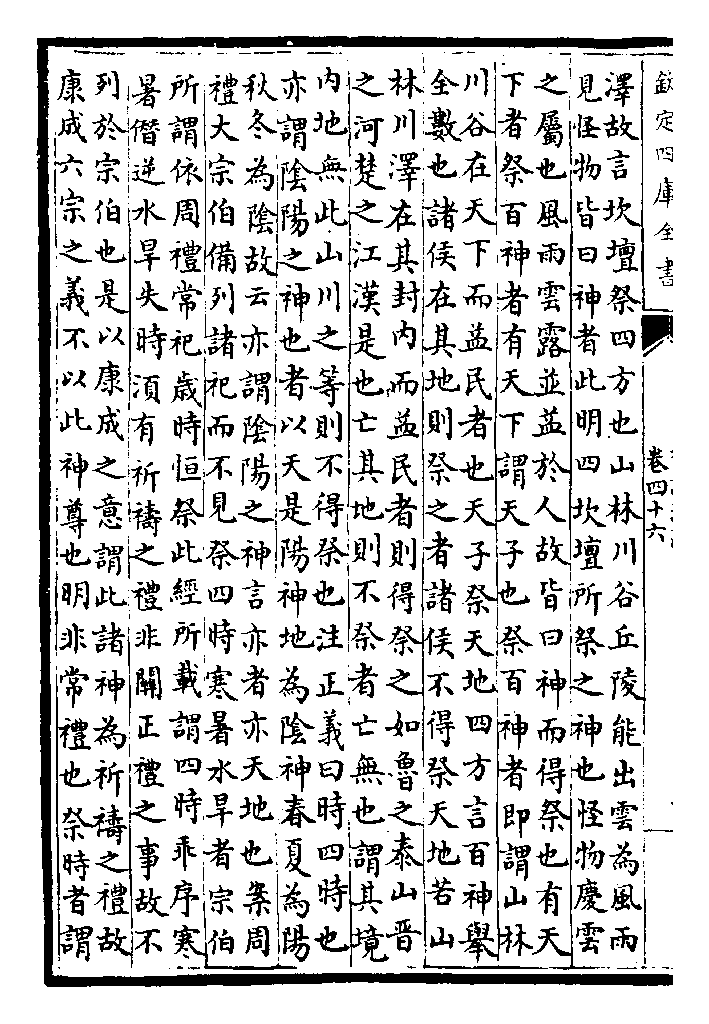 欽定四庫全書
卷四十六
澤故言坎壇祭四方也山林川谷丘陵能出雲為風雨
見怪物皆曰神者此明四坎壇所祭之神也怪物慶雲
之屬也風雨雲露並益於人故皆曰神而得祭也有天
下者祭百神者有天下謂天子也祭百神者即謂山林
川谷在天下而益民者也天子祭天地四方言百神舉
全數也諸侯在其地則祭之者諸侯不得祭天地若山
林川澤在其封内而益民者則得祭之如魯之泰山晋
之河楚之江漢是也亡其地則不祭者亡無也謂其境
内地無此山川之等則不得祭也注正義曰時四時也
亦謂陰陽之神也者以天是陽神地為陰神春夏為陽
秋冬為陰故云亦謂陰陽之神言亦者亦天地也案周
禮大宗伯備列諸祀而不見祭四時寒暑水旱者宗伯
所謂依周禮常祀歲時恒祭此經所載謂四時乖序寒
暑僭逆水旱失時湏有祈禱之禮非關正禮之事故不
列於宗伯也是以康成之意謂此諸神為祈禱之禮故
康成六宗之義不以此神尊也明非常禮也祭時者謂